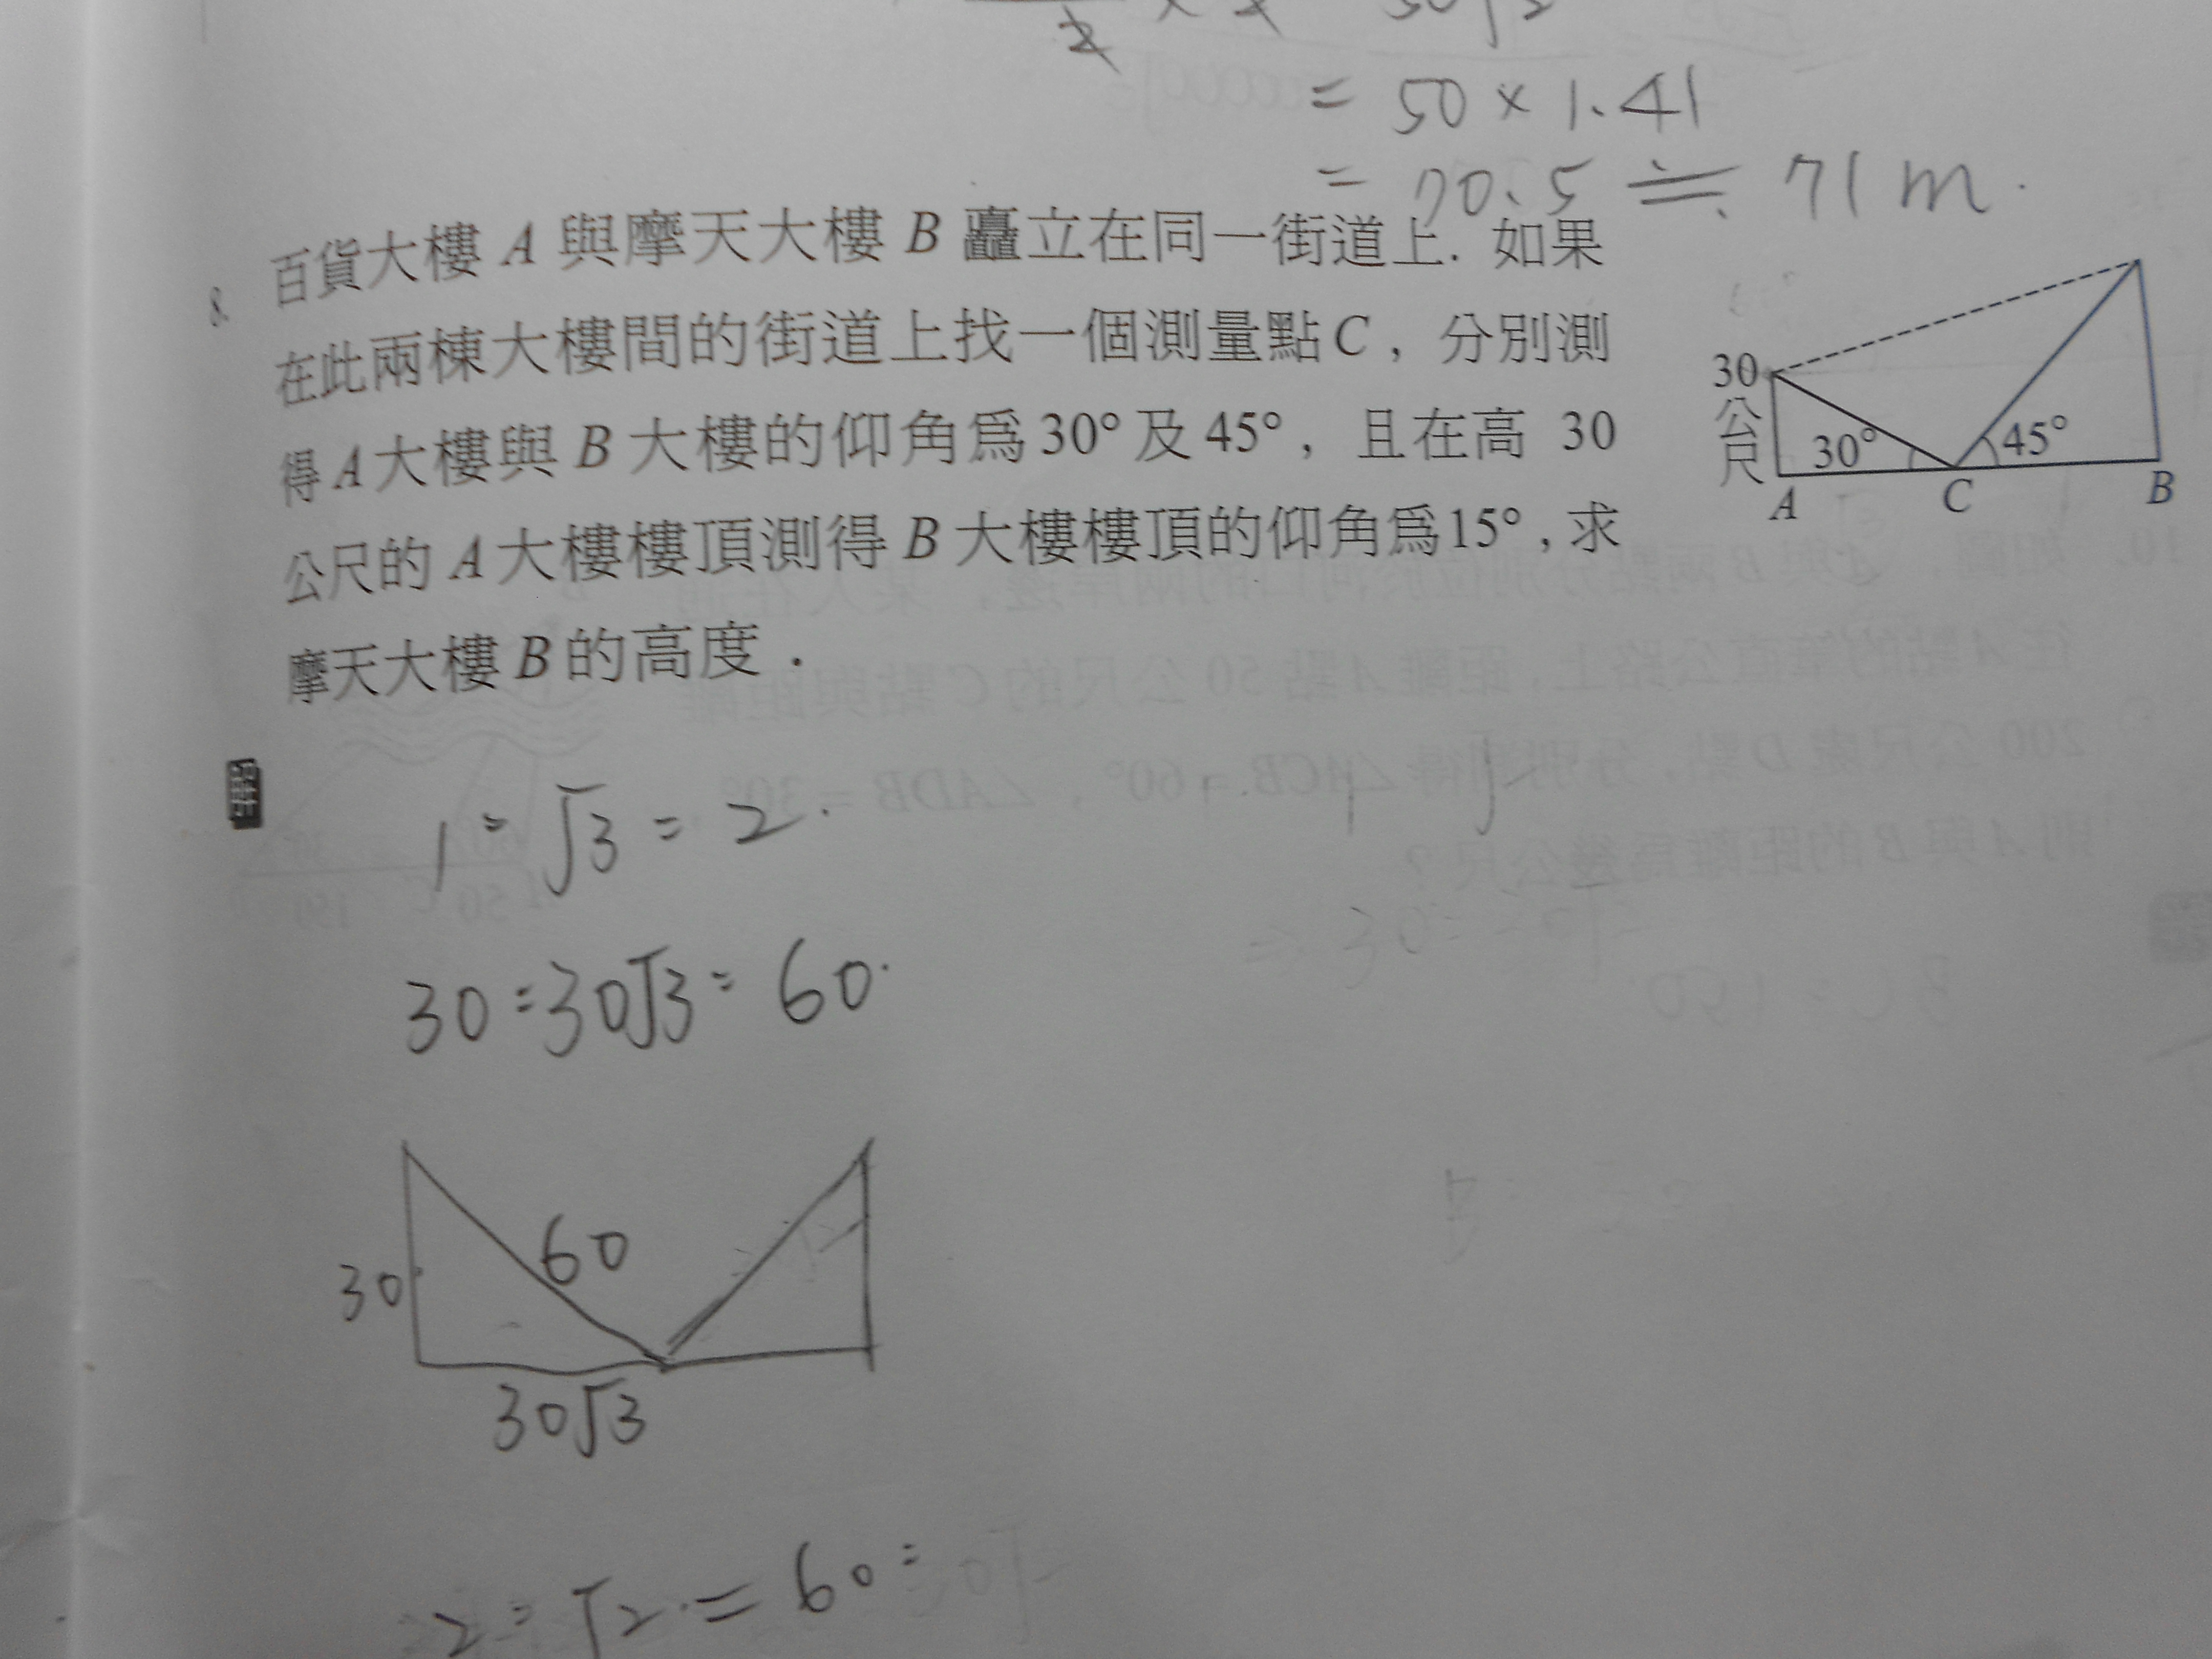 = 50 × 1.41
= 70.5 ≒ 71 m.
8. 百貨大樓 A 與摩天大樓 B 矗立在同一街道上. 如果
在此兩棟大樓間的街道上找一個測量點C，分別測
得A大樓與 B 大樓的仰角為30°及45°，且在高 30
公尺的 A大樓樓頂測得 B 大樓樓頂的仰角為15°，求
摩天大樓 B 的高度．
30
公
尺
30°
45°
A
C
B
1 : √3 : 2.
30 : 30√3 : 60.
60
30
30√3
2 : √2 = 60 :